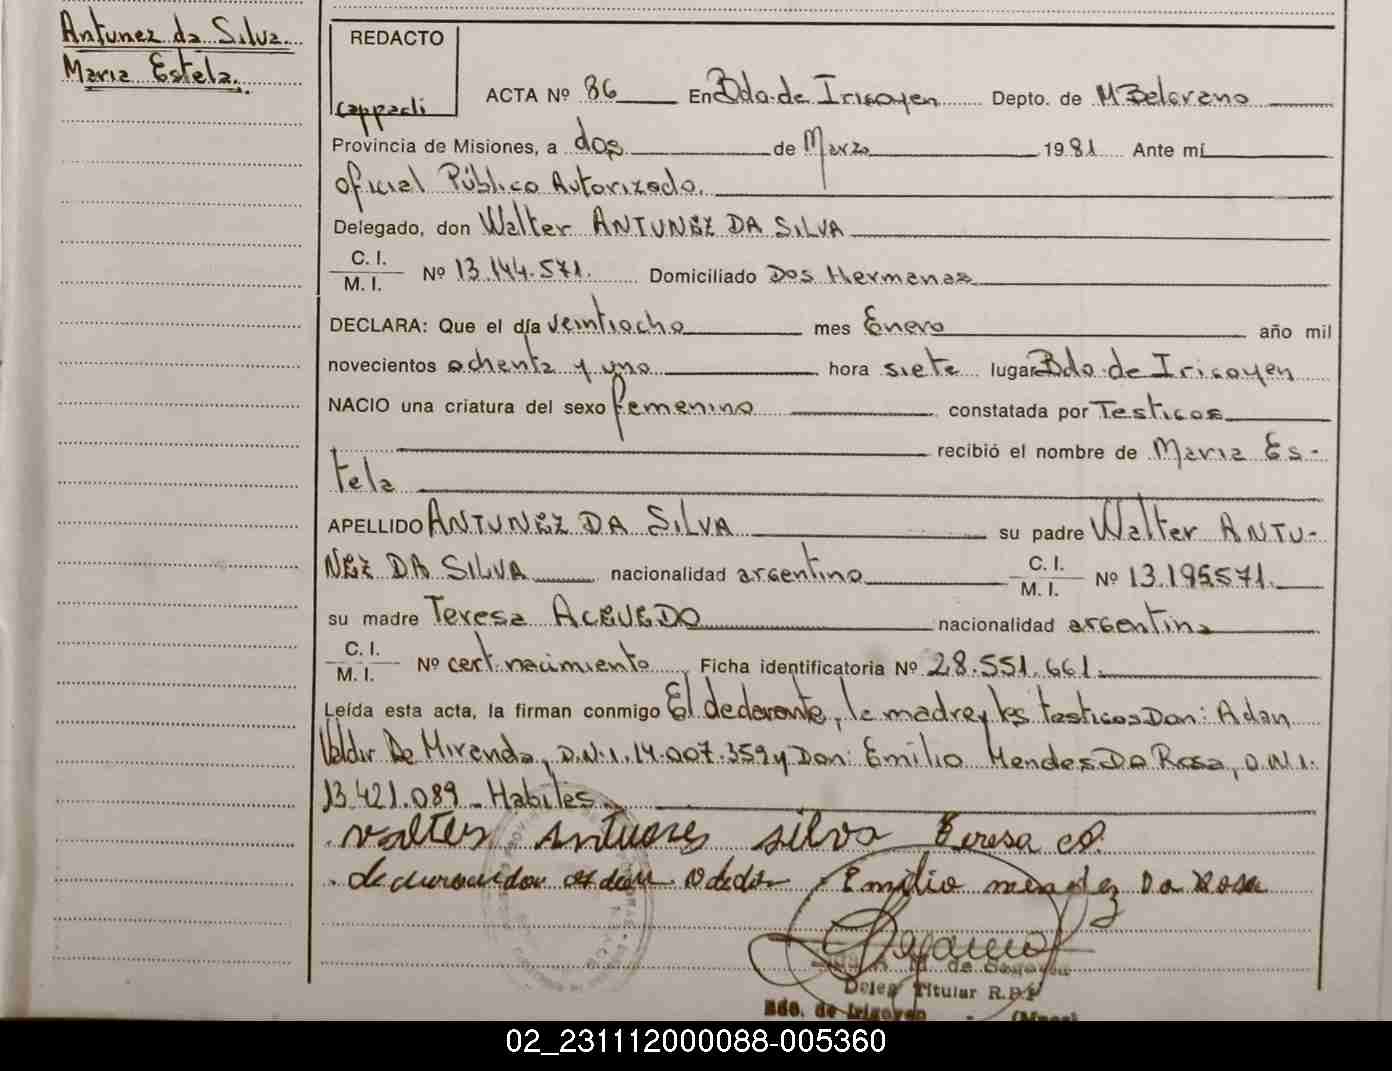 Antunez da Silva
Maria Estela.
REDACTO
cappadi
ACTA Nº 86 En Bdo. de Irigoyen Depto. de M Belgrano
Provincia de Misiones, a dos de Marzo 1981 Ante mí
oficial Público Autorizado.
Delegado, don Walter ANTUNEZ DA SILVA
C. I.
M. I. Nº 13.144.571. Domiciliado Dos Hermanas
DECLARA: Que el día veintiocho mes Enero año mil
novecientos ochenta y uno hora siete lugar Bdo. de Irigoyen
NACIO una criatura del sexo femenino constatada por Testigos
recibió el nombre de Maria Es-
tela
APELLIDO ANTUNEZ DA SILVA su padre Walter ANTU-
NEZ DA SILVA nacionalidad argentino C. I.
M. I. Nº 13.195.571.
su madre Teresa ACEVEDO nacionalidad argentina
C. I.
M. I. Nº cert. nacimiento Ficha identificatoria Nº 28.551.661.
Leída esta acta, la firman conmigo El declarante, la madre y los testigos Don: Adan
Valdir De Miranda, D.N.I. 14.007.359 y Don: Emilio Mendes Da Rosa, D.N.I.
13.421.089 - Habiles.
valter Antunes silva Teresa
Emilio mendez Da Rosa
de Segovia
Deleg. Titular R.P.
Bdo. de Irigoyen (Mnes)
02_231112000088-005360